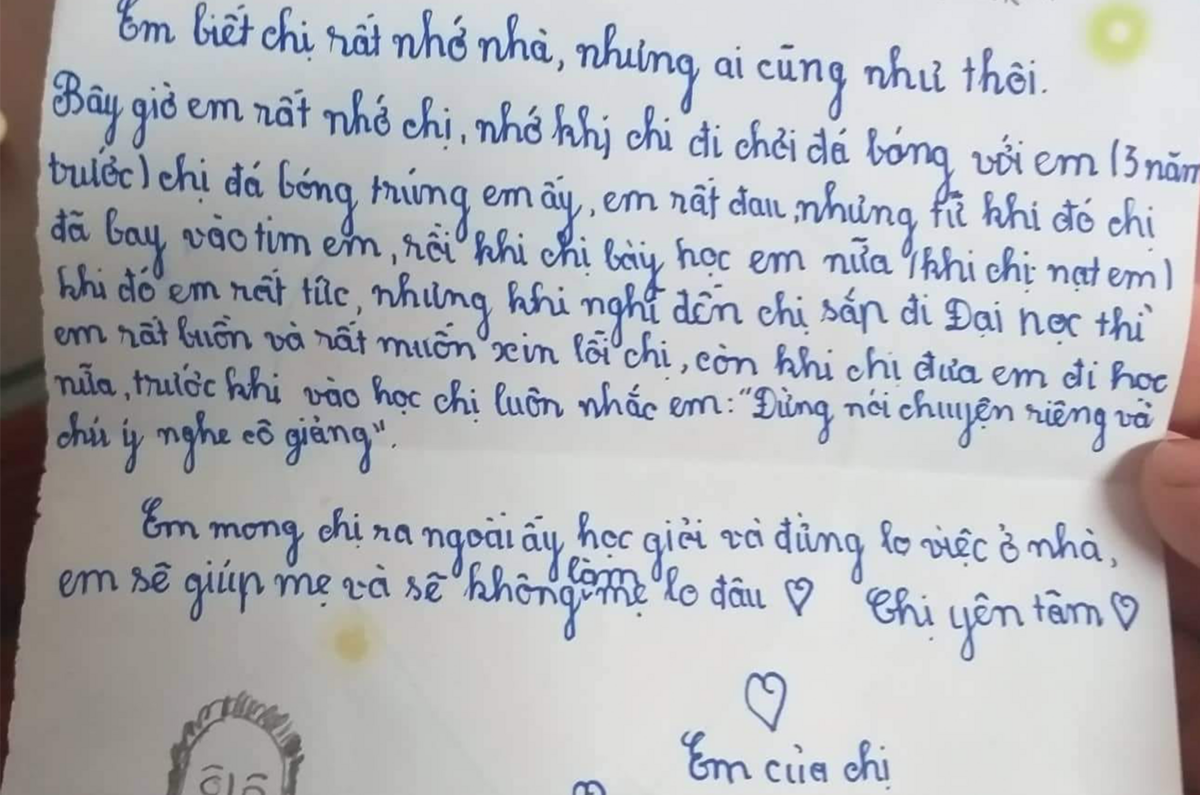 Em biết chị rất nhớ nhà, nhưng ai cũng như thôi.
Bây giờ em rất nhớ chị, nhớ khị chi đi chơi đá bóng với em (3 năm
trước) chị đá bóng trúng em ấy, em rất đau, nhưng từ khi đó chị
đã bay vào tim em, rồi khi chị bày học em nữa (khi chị nạt em)
khi đó em rất tức, nhưng khi nghĩ đến chị sắp đi Đại học thì
em rất buồn và rất muốn xin lỗi chị, còn khi chị đưa em đi học
nữa, trước khi vào học chị luôn nhắc em: "Đừng nói chuyện riêng và
chú ý nghe cô giảng".
Em mong chị ra ngoài ấy học giỏi và đừng lo việc ở nhà,
làm
em sẽ giúp mẹ và sẽ không mẹ lo đâu ♡ Chị yên tâm ♡
♡
Em của chị